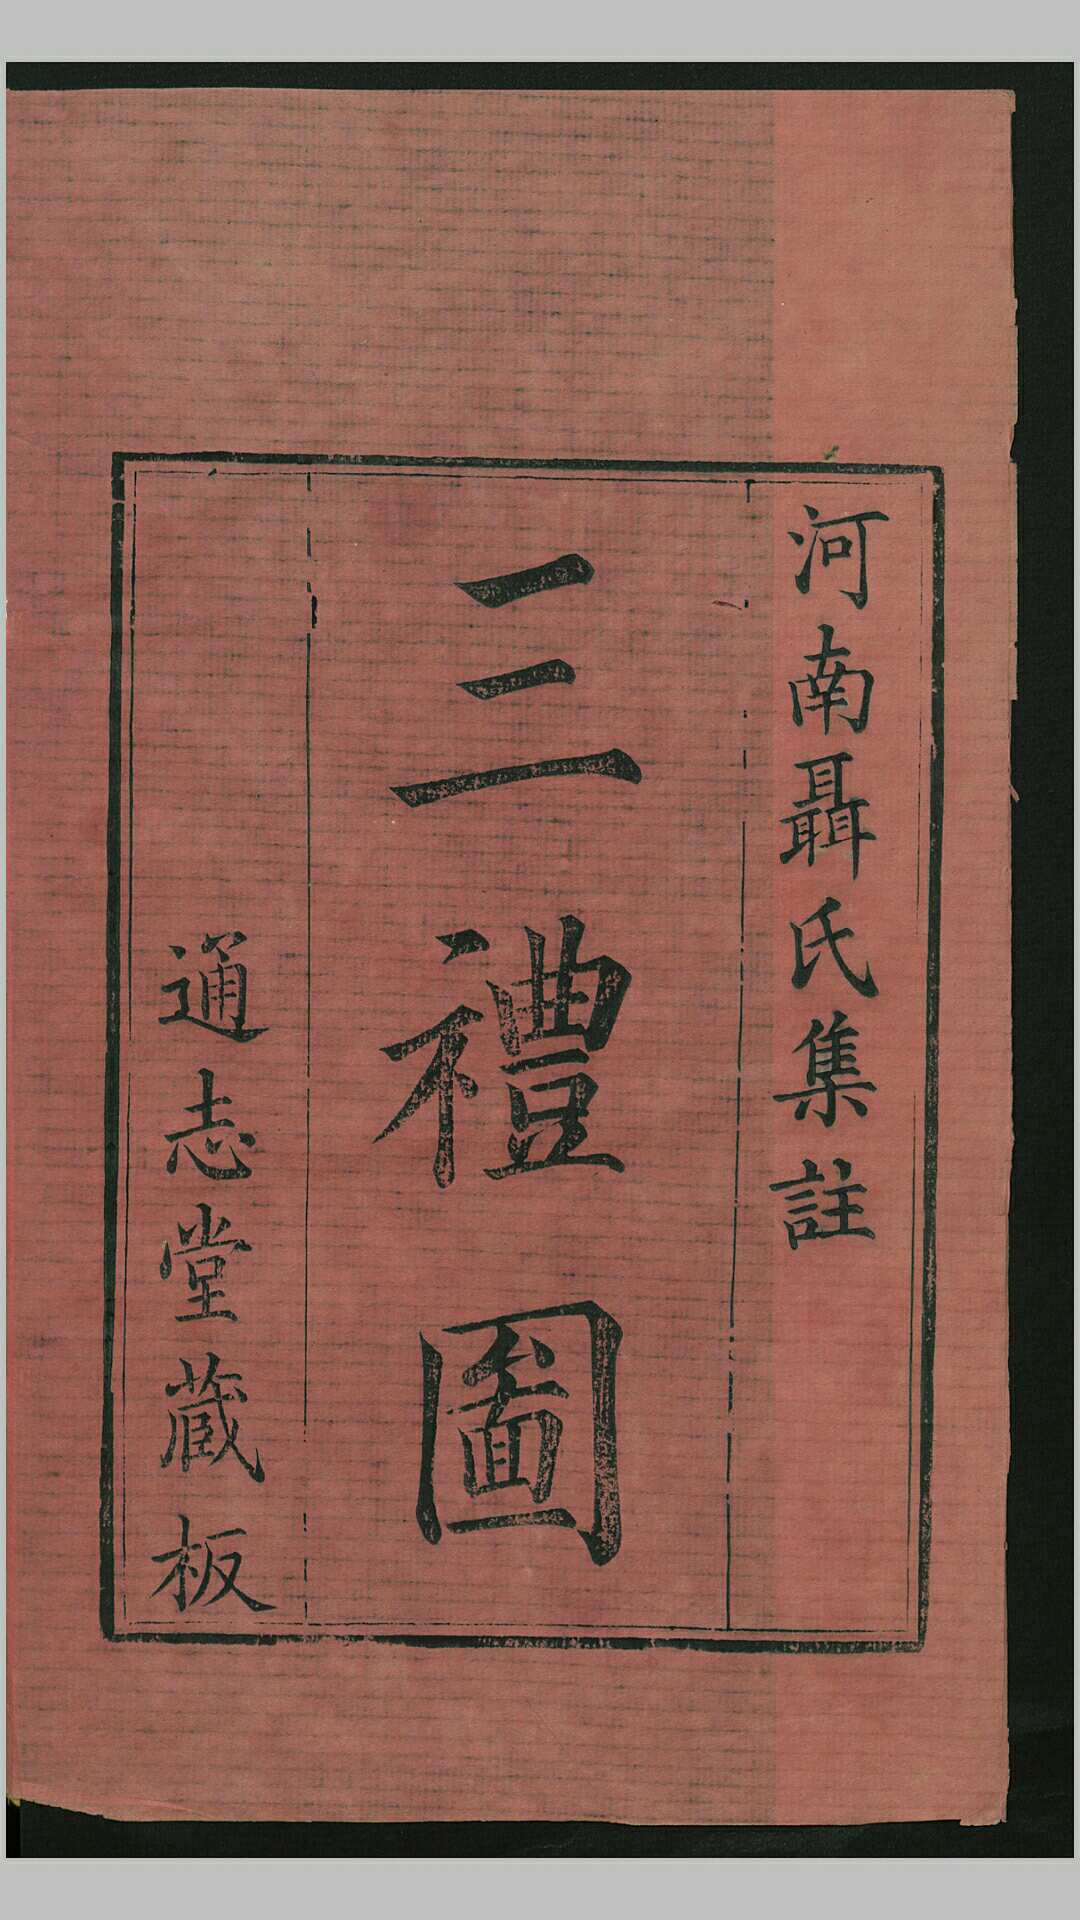 河南聶氏集註
三禮圖
通志堂藏板